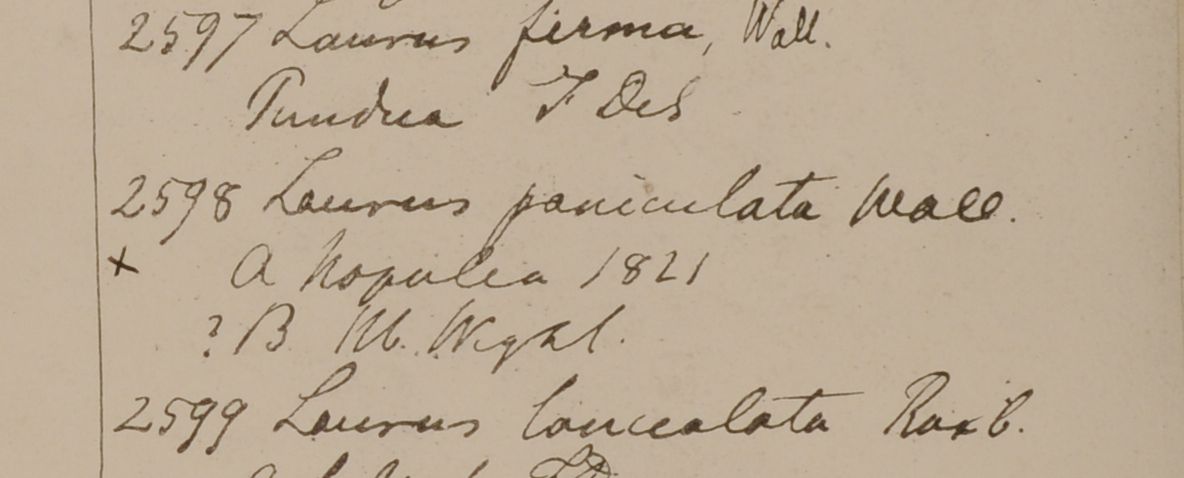 2597 Laurus firma, Wall.
Pundua F De S
2598 Laurus paniculata Wall.
+ A Napalea 1821
? B Hb. Wight.
2599 Laurus lanceolata Roxb.